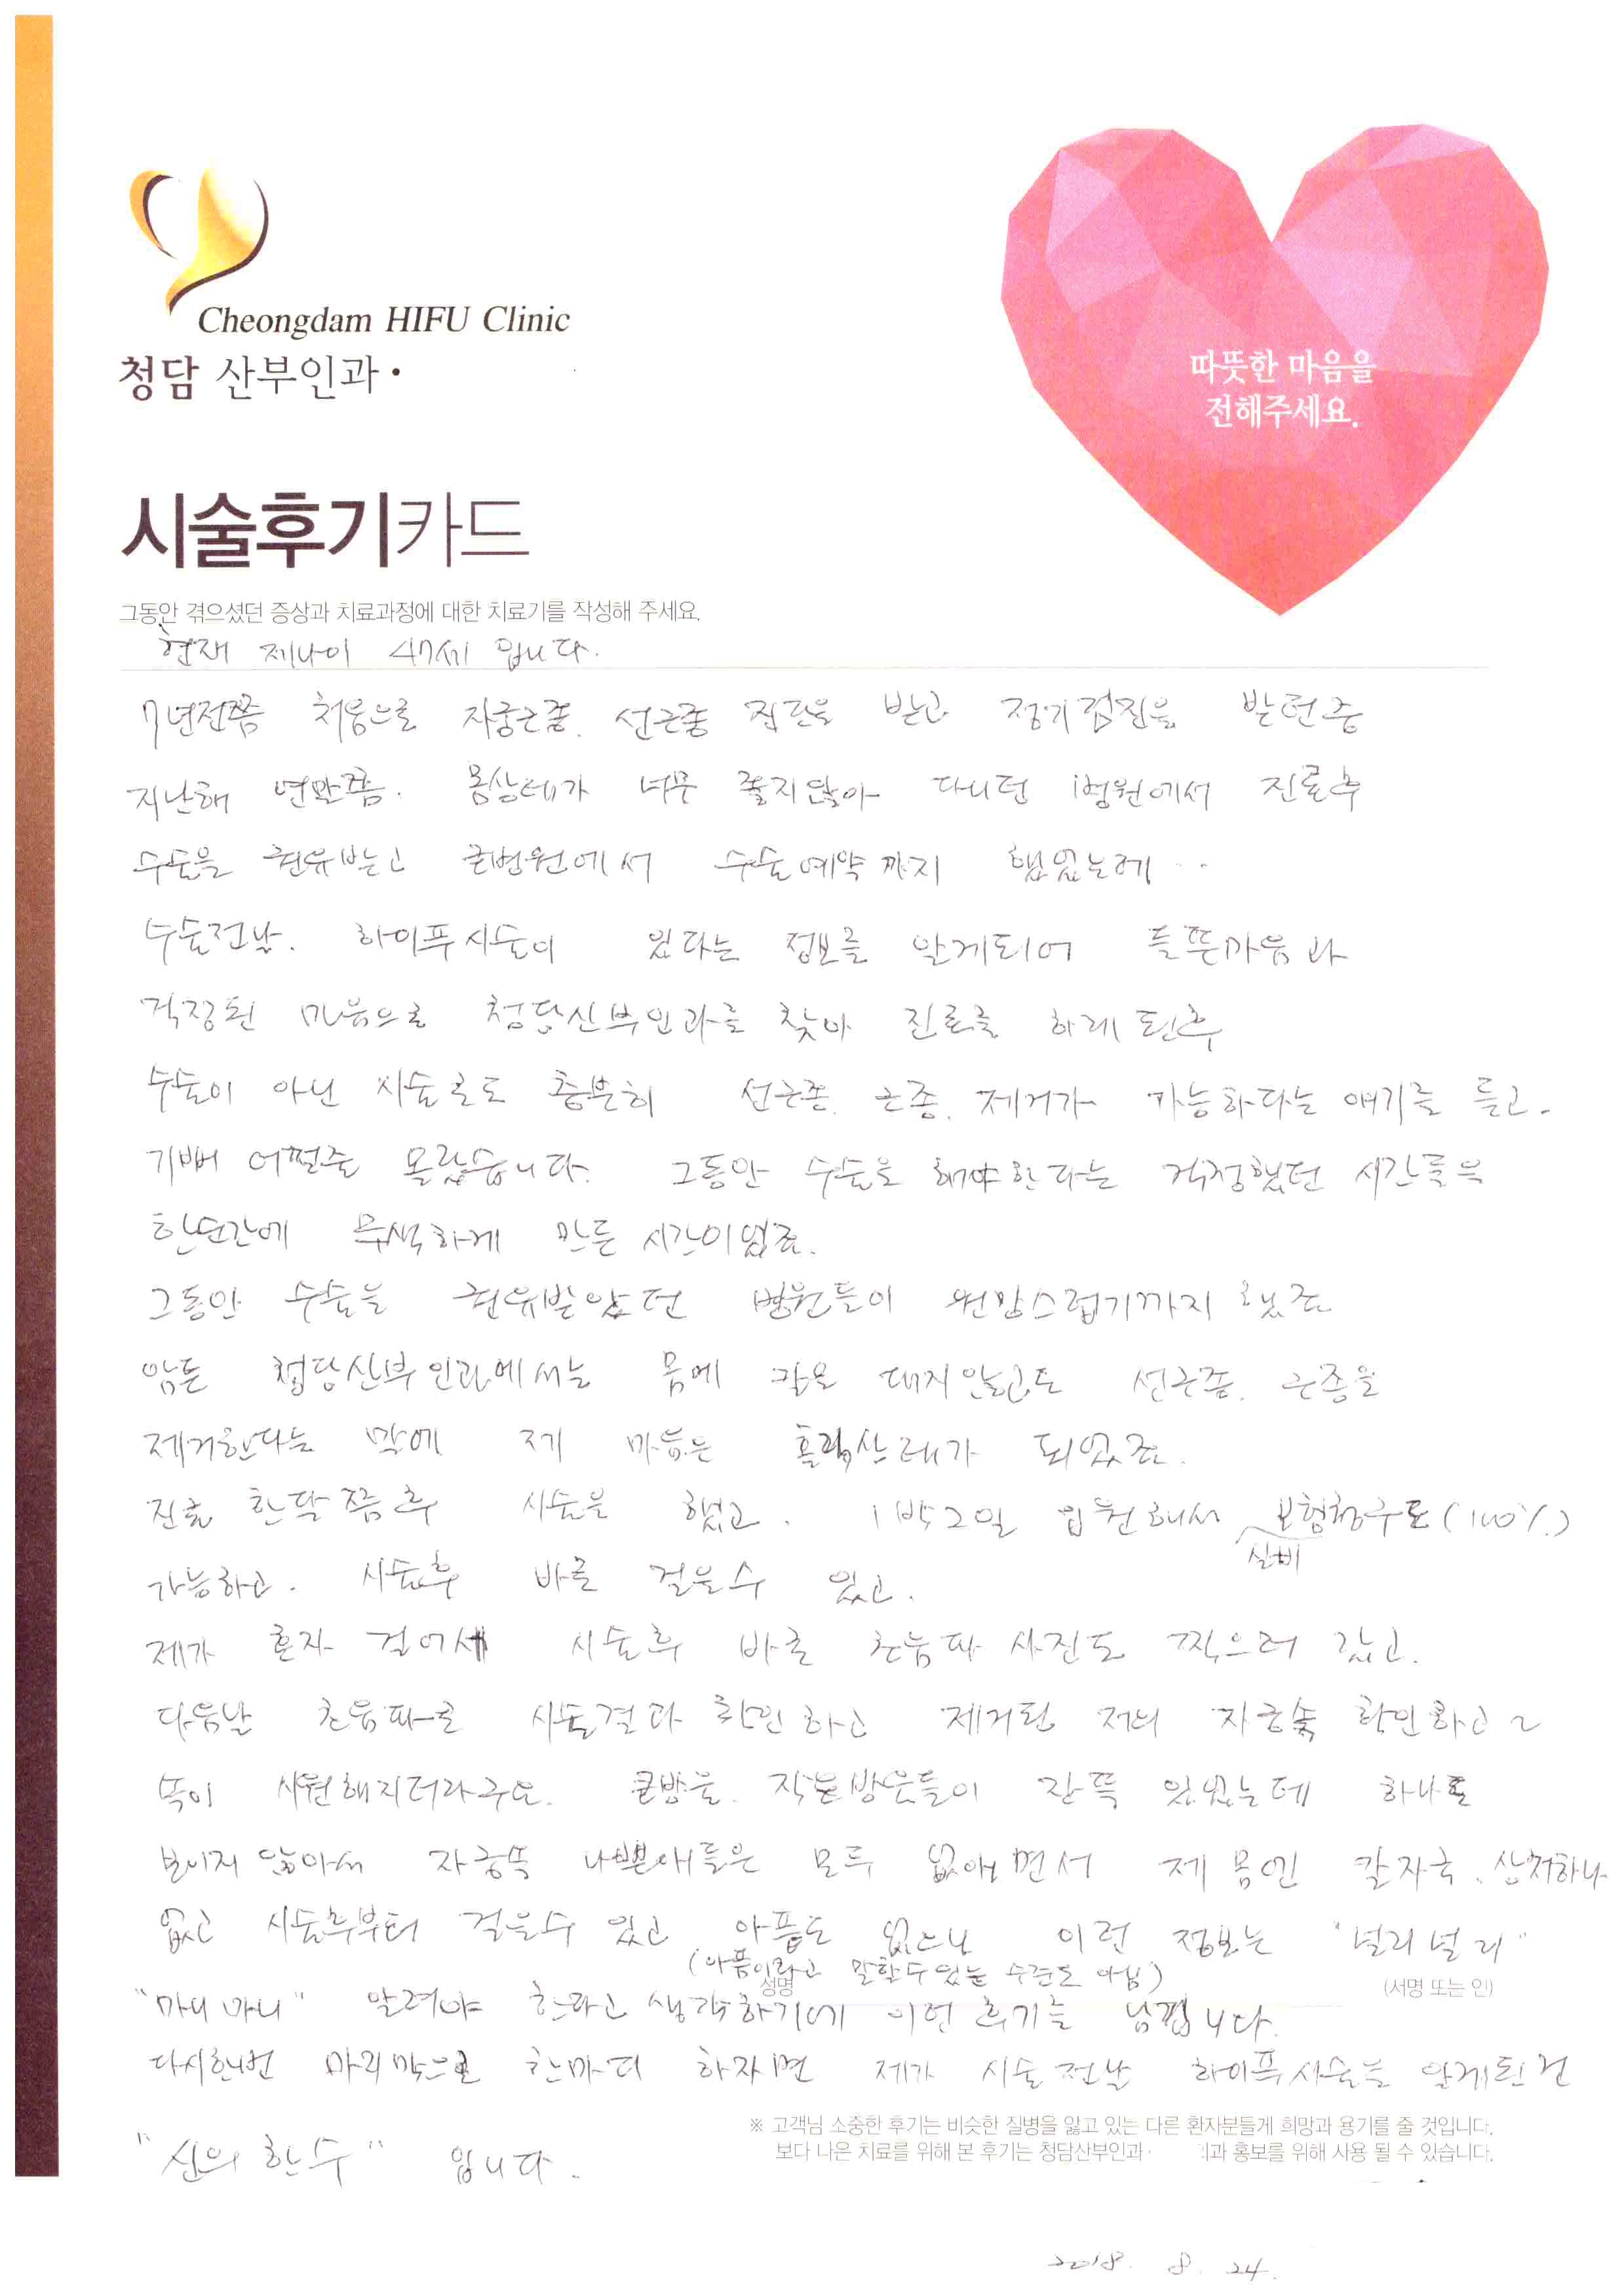 Cheongdam HIFU Clinic
청담 산부인과·
따뜻한 마음을
전해주세요.
시술후기카드
그동안 겪으셨던 증상과 치료과정에 대한 치료기를 작성해 주세요.
현재 제나이 47세 입니다.
7년전쯤 처음으로 자궁근종. 선근종 진단을 받고 정기검진을 받던중
지난해 연말쯤. 몸상태가 너무 좋지않아 다니던 병원에서 진료후
수술을 권유받고 큰병원에서 수술예약까지 했었는데..
수술전날. 하이푸시술이 있다는 정보를 알게되어 들뜬마음과
걱정된 마음으로 청담산부인과를 찾아 진료를 하게 된후
수술이 아닌 시술로도 충분히 선근종. 근종. 제거가 가능하다는 얘기를 듣고.
기뻐 어쩔줄 몰랐습니다. 그동안 수술을 해야한다는 걱정했던 시간들을
한순간에 무색하게 만든 시간이였죠.
그동안 수술을 권유받았던 병원들이 원망스럽기까지 했죠
암튼 청담산부인과에서는 몸에 칼을 대지않고도 선근종. 근종을
제거한다는 말에 제 마음은 홀릭상태가 되었죠.
진료 한달쯤후 시술을 했고. 1박2일 입원해서 보험청구도(100%)
실비
가능하고. 시술후 바로 걸을수 있고.
제가 혼자 걸어서 시술후 바로 초음파 사진도 찍으러 갔고.
다음날 초음파로 시술결과 확인하고 제거된 저의 자궁속 확인하고~
속이 시원해지더라구요. 큰방울. 작은방울들이 잔뜩 있었는데 하나도
보이지 않아서 자궁쪽 나쁜애들은 모두 없애면서 제 몸엔 칼자국. 상처하나
없고 시술후부터 걸을수 있고 아픔도 없으니 이런 정보는 "널리널리"
(아픔이라고 말할수있는 수준도 아님)
성명
(서명 또는 인)
"마니마니" 알려야 한다고 생각하기에 이런 후기를 남깁니다.
다시한번 마지막으로 한마디 하자면 제가 시술 전날 하이푸시술을 알게된건
※ 고객님 소중한 후기는 비슷한 질병을 앓고 있는 다른 환자분들게 희망과 용기를 줄 것입니다.
보다 나은 치료를 위해 본 후기는 청담산부인과· 과 홍보를 위해 사용 될 수 있습니다.
"신의 한수" 입니다.
2018. 8. 24.